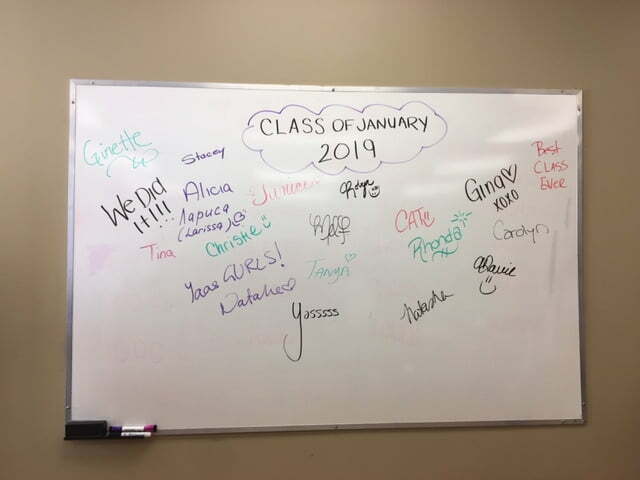 CLASS OF JANUARY
2019
Ginette
Stacey
We Did
It!!!
Alicia
Лариса
(Larissa)
Tina
Christie
Yaas GURLS!
Natalie
Tanya
Yasssss
CATE
Rhonda
Natasha
Gina
XOXO
Carolyn
Best
CLASS
EVER